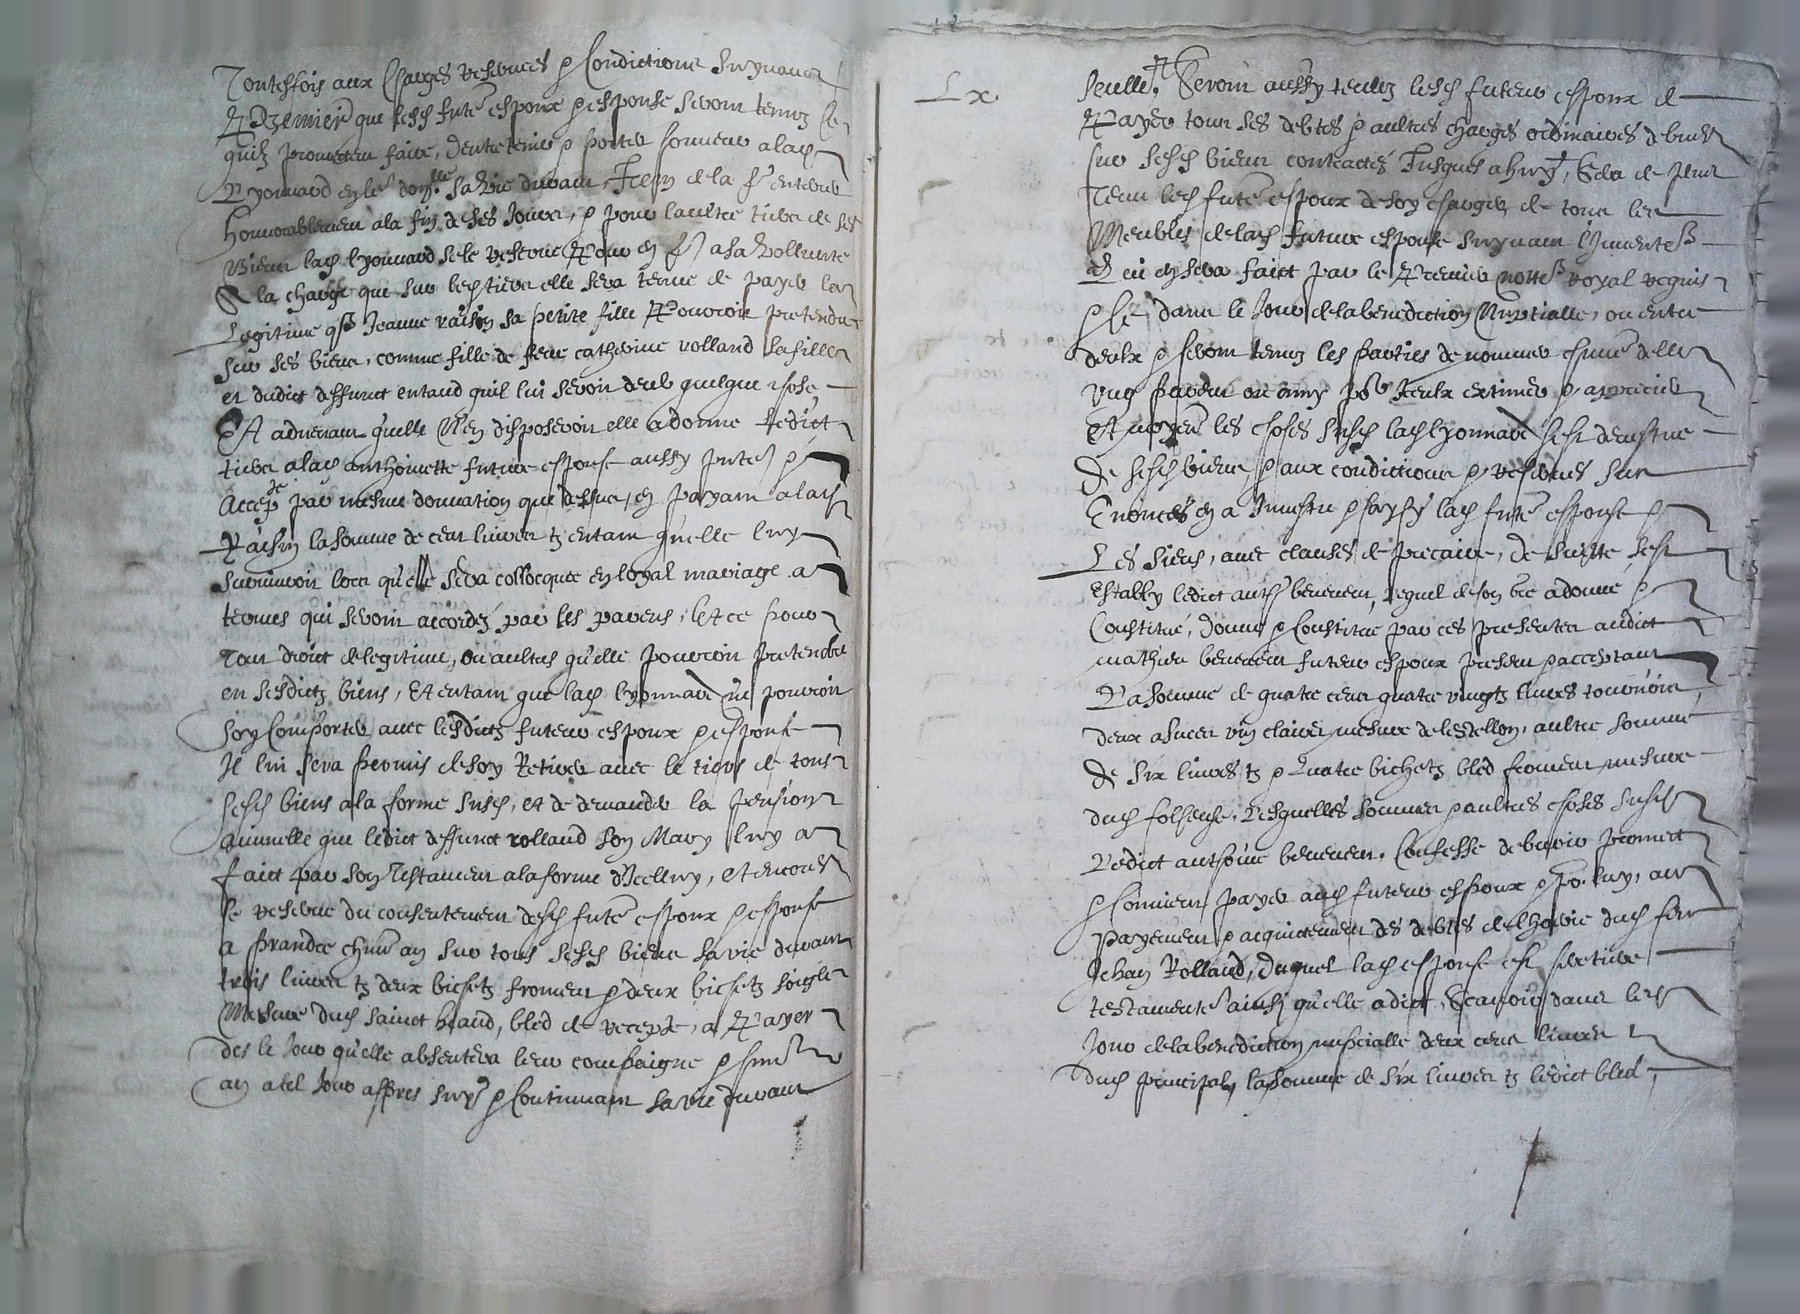 Toutesfois aux charges reserves & conditions suyvantes
Premier que lesd. fut. espoux & espouse seront tenuz
quilz promettent faire, dentretenir & porter honneur a lad.
Lyonnard en leur dom.lle sa vie durant, Item de la f. enterrer
honnorablement a la fin de ses jours, & pour laultre tiers de ses
biens lad. Lyonnard se le reserve pour en f. a sa vollunté
A la charge que sur led. tiers elle sera tenue de payer la
Legitime q. Jeanne raisin sa petite fille Pourroit pretendre
sur ses biens, comme fille de feue catherine rolland sa fille
et dudict deffunct entand quil lui seroit deub quelque chose
Et advenant quelle n'en disposeroit elle a donné ledict
tiers a lad. anthoinette future espouse aussy pnte &
accep.te par mesme donnation que dessus, en payant a lad.
Raisin la somme de cent livres tz entant qu'elle luy
surviuroit lors qu'elle sera collocquee en loyal mariage a
termes qui seront accordez par les parens, Et ce pour
tout droict de legitime, ou aultres qu'elle pourroit pretendre
en sesdictz biens, Et entant que lad. lyonnard ne pourroit
soy comporter avec lesdictz futeurs espoux & espouse
Il lui sera permis de soy Retirer avec le tiers de tous
sesd. biens a la forme susd., et de demander la pension
annuelle que ledict deffunct rolland son Mary luy a
faict par son Testament a la forme d'Icelluy, et encores
se reserve du consentement desd. fut. espoux & espouse
a prandre chun an sur tous sesd. biens sa vie durant
trois livres tz deux bichetz froment & deux bichetz soigle
Mesure dud. sainct heand, bled de recepte, a Payer
des le jour qu'elle absentera leur compaigne & chun
an a tel jour appres suyv. & continuant sa vie durant
Lx
seulle, Seront aussy tenuz lesd. futeurs espoux de
Payer tous les debtes & aultres charges ordinaires debues
sur sesd. biens contractés Jusques a huy, Sera de plus
tenu led. fut. espoux de soy charger de tous les
Meubles de lad. future espouse suyvant l'Inventere
q. en sera faict par le Premier notte royal requis
& ce dans le jour de la benediction Nuptialle, ou entre
deulx & seront tenuz les parties de nommer chune delles
ung parent ou amy po. Iceulx extimer & apprecier
Et moyen. les choses susd. lad. lyonnard sest devestue
de sesd. biens, & aux conditions & reserves sus
Enoncés en a Investu & saysy lad. fut. espouse &
Les siens, avec clauses de precaire, De suitte, sest
establi ledict anth. beneven., lequel de son bre a donné &
Constitué, donne & constitue par ces presentes audict
mathieu benevent futeur espoux present & acceptant
La somme de quatre cent quatre vingtz livres tournois
deux asnees vin clairet mesure de lestellon, aultre somme
de six livres tz & Quatre bichetz bled froment mesure
dud. folheuse, Lesquelles sommes & aultres choses susd.
Ledict anthoine benevent, Confesse debvoir promect
& convient payer aud. futeur espoux & po. luy, au
Payement & acquictement des debtes de lhoirie dud. feu
Jehan Rolland, duquel lad. espouse est heretiere
testamente. ainsy qu'elle a dict, Scavoir dans le
Jour de la benediction nuptialle deux cens livres
dud. principal, la somme de six livres tz ledict bled